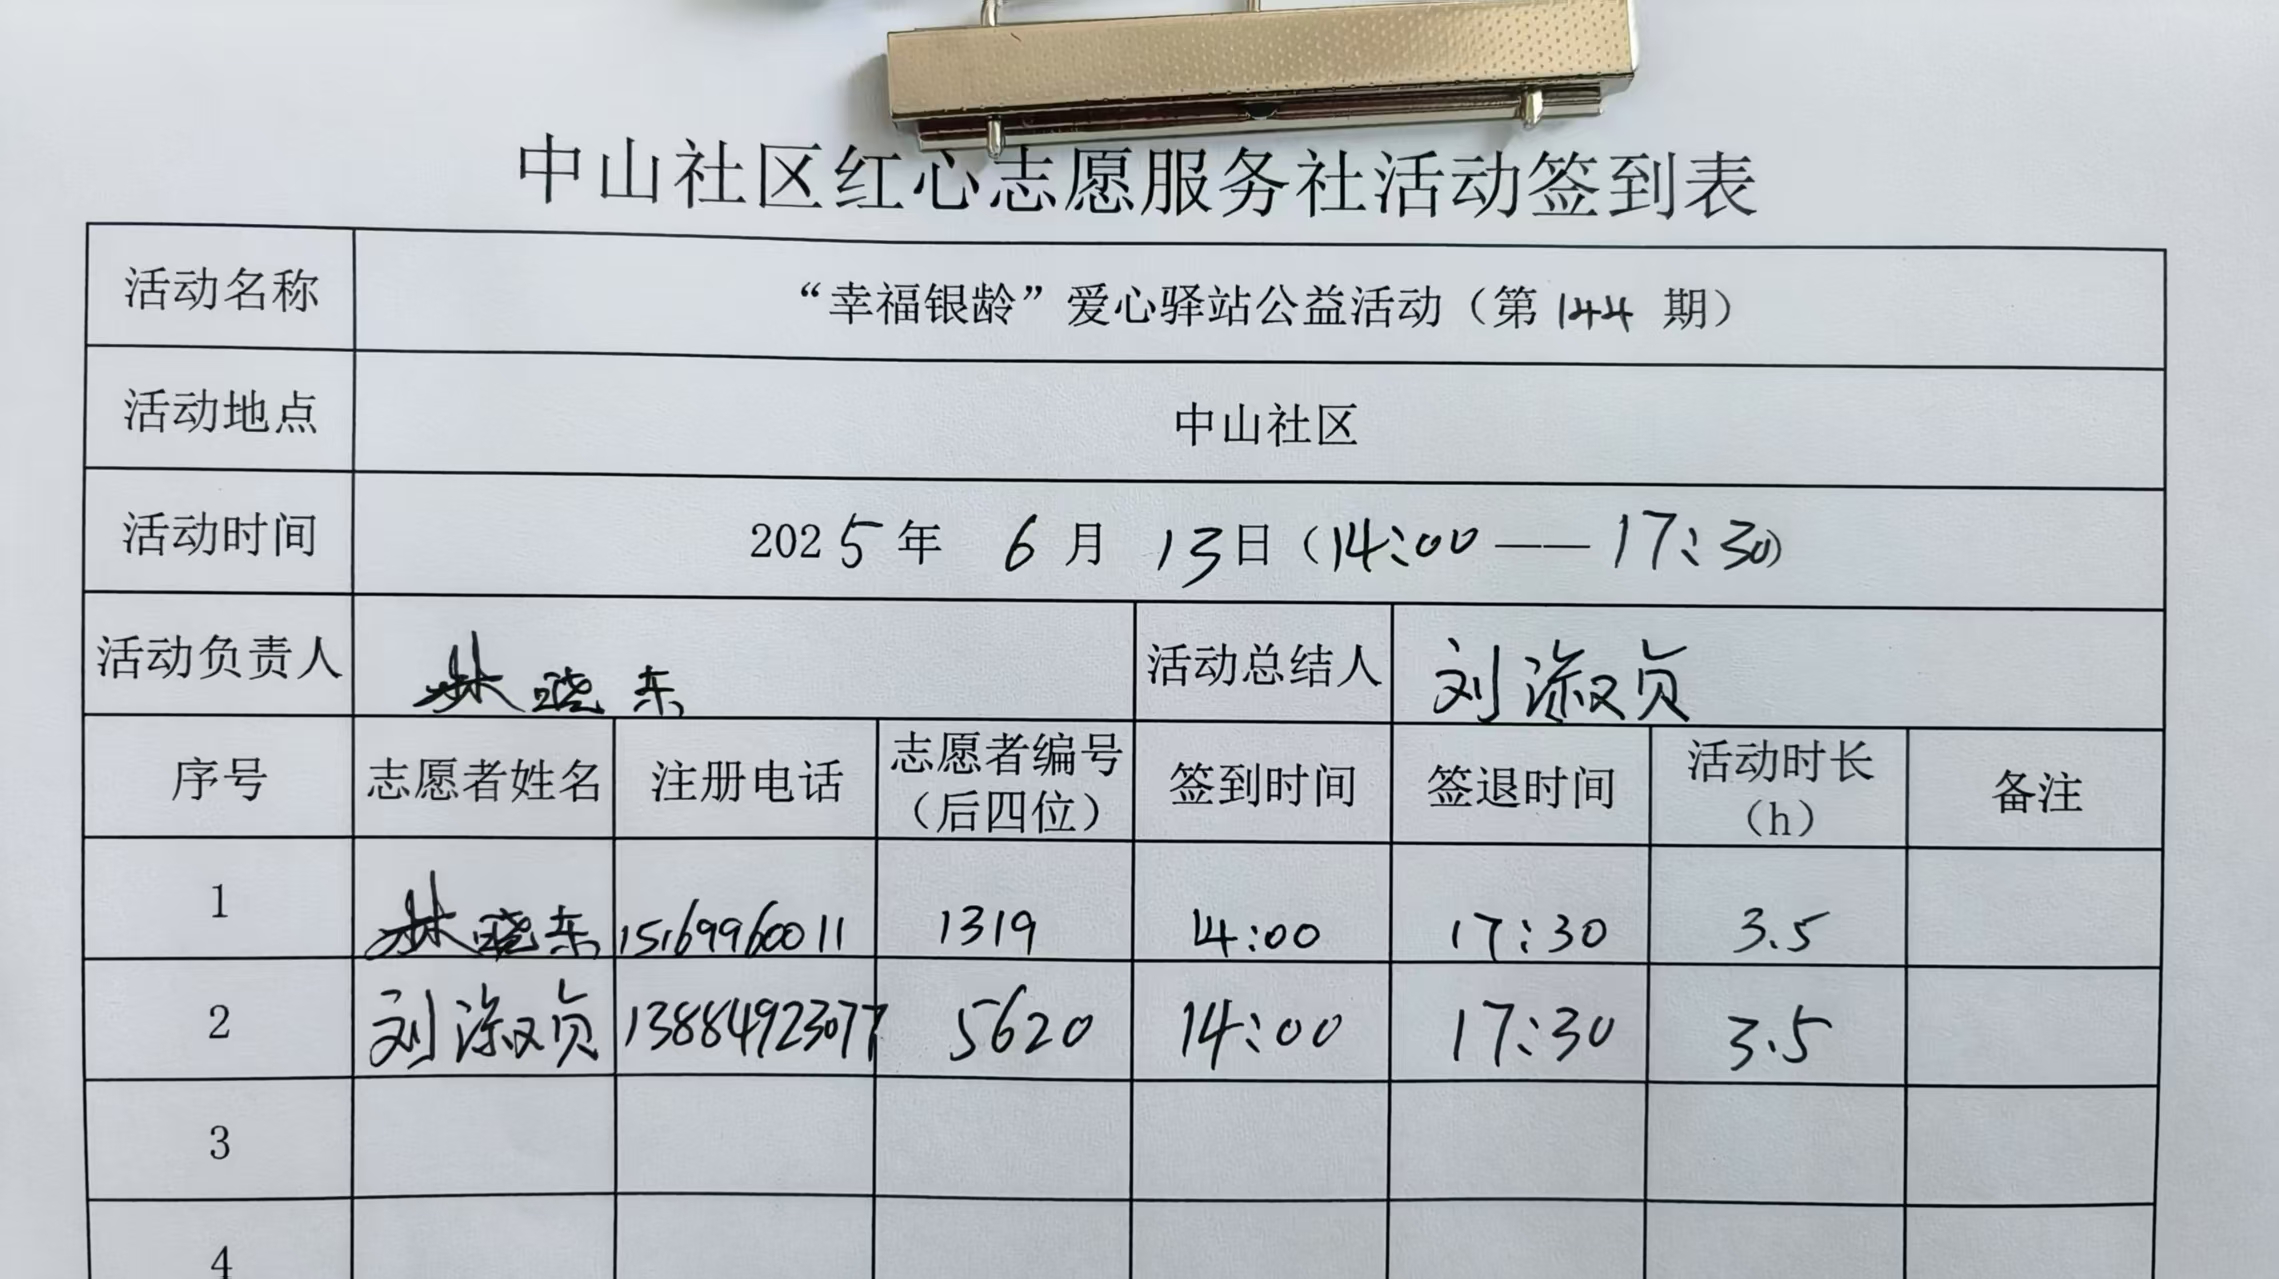 中山社区红心志愿服务社活动签到表
活动名称 “幸福银龄”爱心驿站公益活动（第 144 期）
活动地点 中山社区
活动时间 2025年 6月 13日（14:00——17:30）
活动负责人 林晓东 活动总结人 刘淑贞
序号 志愿者姓名 注册电话 志愿者编号（后四位） 签到时间 签退时间 活动时长（h） 备注
1 林晓东 15169960011 1319 14:00 17:30 3.5
2 刘淑贞 13884923077 5620 14:00 17:30 3.5
3
4